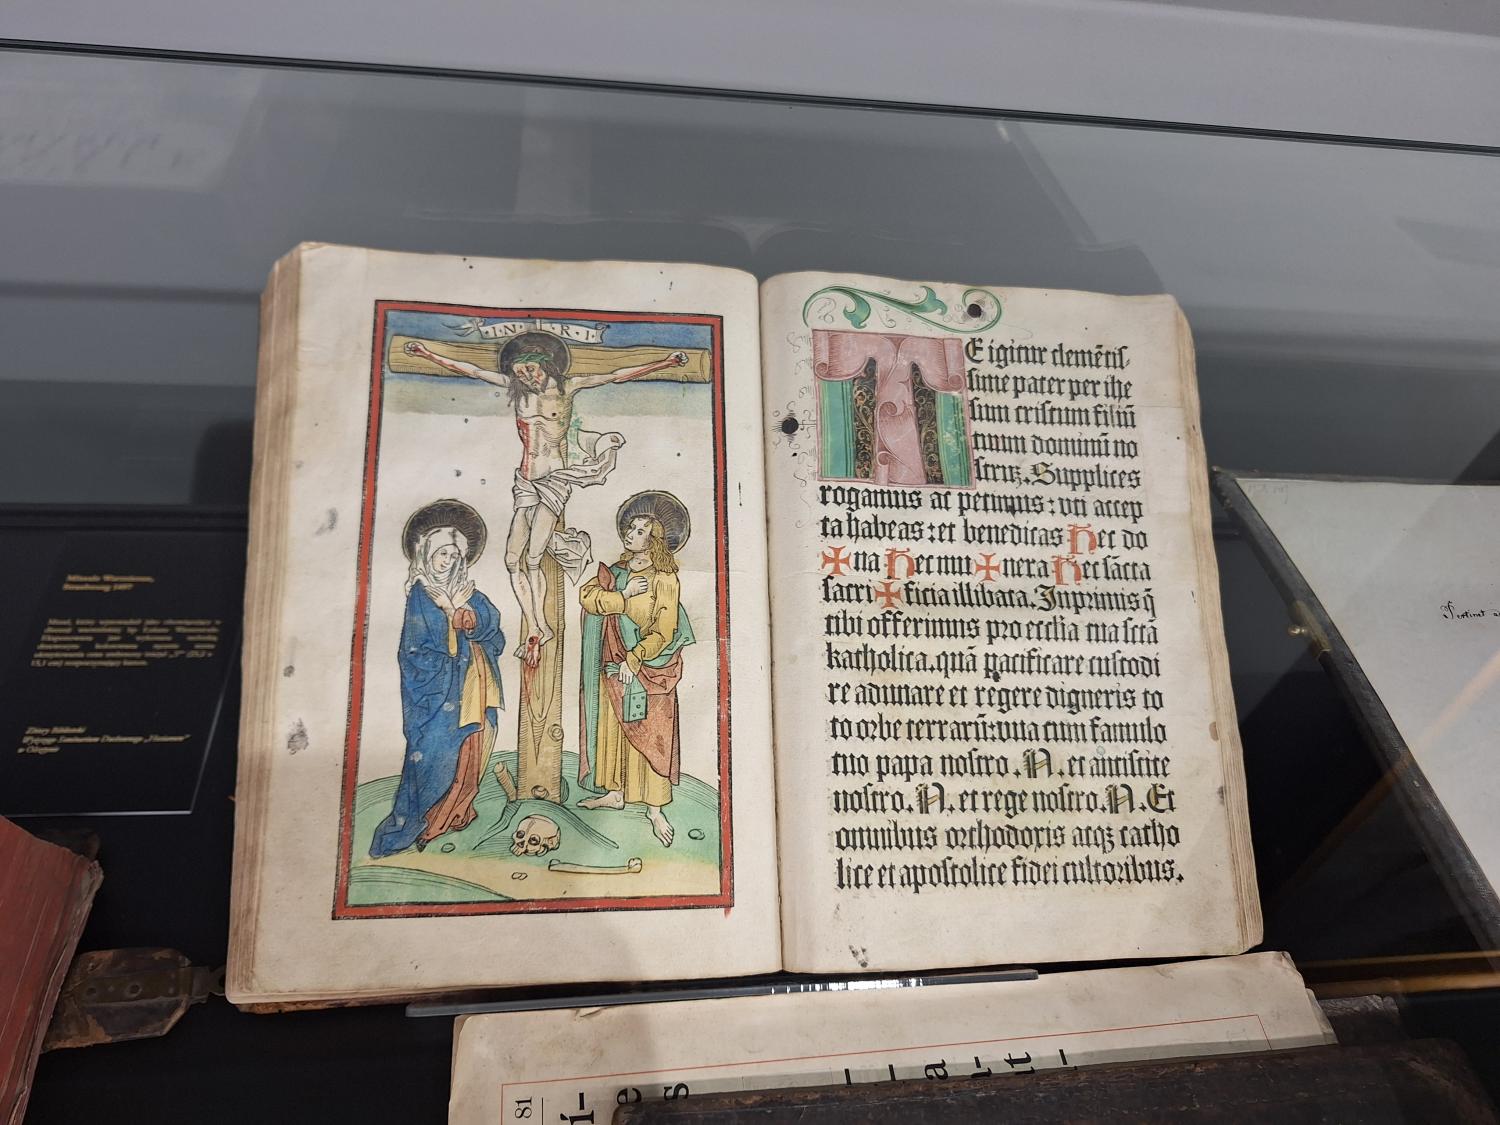 ·I·N· ·R·I·
TE igitur clemētis
sime pater per ihe
sum cristum filiū
tuum dominū no
strūꝫ. Supplices
rogamus ac petimus: vti accep
ta habeas: et benedicas hec do
✠na hec mu✠nera hec sācta
sacri✠ficia illibata. Inprimis q̄
tibi offerimus pro ecclīa tua sctā
katholica. quā pacificare custodi
re adunare et regere digneris to
to orbe terrarū: vna cum famulo
tuo papa nostro. N. et antistite
nostro. N. et rege nostro. N. Et
omnibus orthodoxis atqꝫ catho
lice et apostolice fidei cultoribus.
Missale Warmiense,
Strasbourg 1497
Zbiory Biblioteki
Wyższego Seminarium Duchownego „Hosianum”
w Olsztynie
Pertinet
81